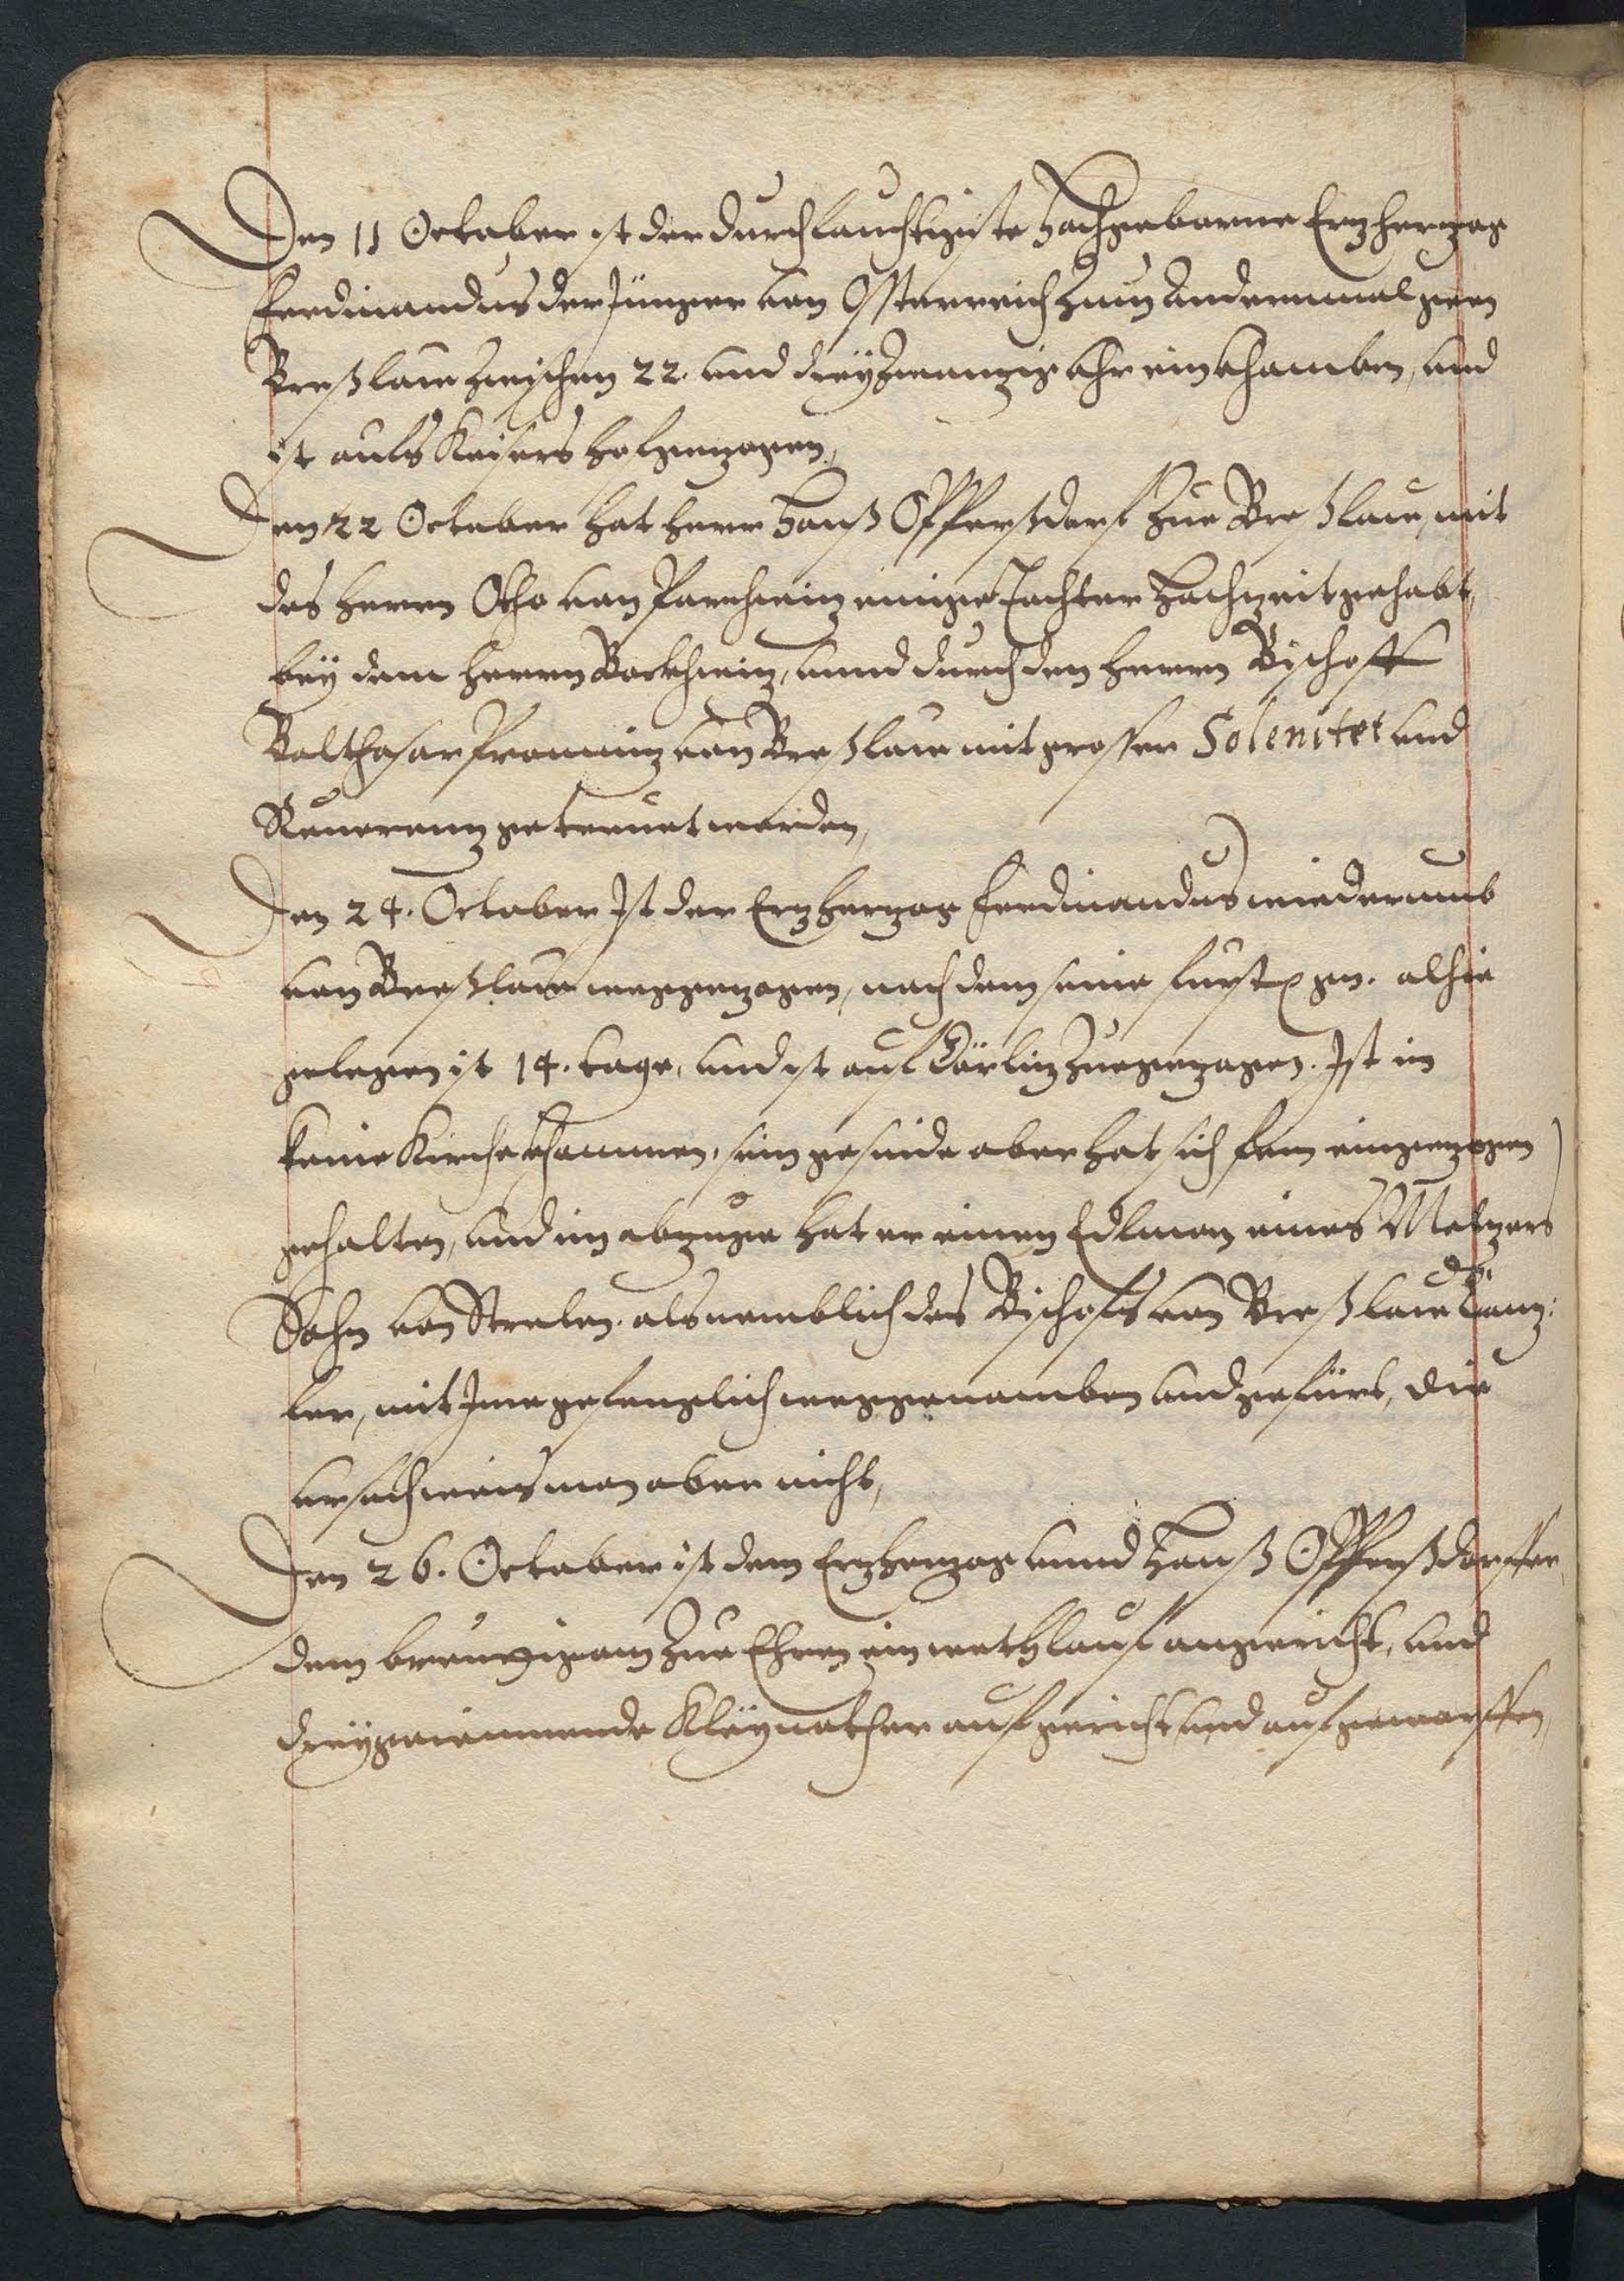 Den 11 October ist der durchlauchtigiste hochgeborne Erzherzog
Ferdinandus der Jünger von Osterreich zum Andernmal gen
Breßlaw zwischen 22. und dreÿzwanzig Uhr einkhomben, und
ist aufs Keisers hof gezogen,
Den 22 October hat herr Hanß Opperßdorf zue Breßlaw, mit
des Herrn Otho von Parchwiz einige Tochter Hochzeit gehabt,
beÿ dem Herrn Bockhwiz, unnd durch den Herrn Bischoff
Balthasar Promniz von Breßlaw mit grosser Solenitet und
Reuerenz getrauet worden,
Den 24. October Ist der Erzherzog Ferdinandus wiederumb
von Breßlaw weggezogen, nach dem seine furstl gn. alhie
gelegen ist 14. tage, und ist auf Görliz zue gezogen. Ist in
keine Kirche khommen, sein gesinde aber hat sich fein eingezogen
gehalten, und im abzuge hat er einen Edlman eines Melzers
Sohn von Strelen. als nemblich des Bischofs von Breßlaw Canz:
ler, mit Ime gefenglich weggenomben und gefürt, die
ursach weis man aber nicht,
Den 26. October ist dem Erzherzog unnd Hanß Opperßdorffer,
dem breutigam zue Ehren ein wethlauf angericht, und
dreÿ gewinnende Kleÿnother aufgericht und aufgeworffen,